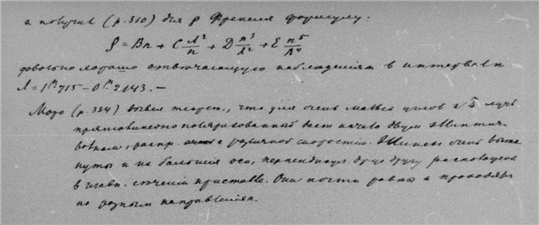 и получив (р. 310) для ρ Френеля формулу.
ρ = Bn + C λ²/n + D n³/λ² + E n⁵/λ⁴
довольно хорошо отвечающую наблюдениям в интервале
λ = 1,715 – 0,2143. —
(р. 334) теорет., что для очень малых углов луч
прямолинейно поляризованный дает начало двум эллиптич.
распр. с различной скоростью. Эллипсы очень вытя-
нуты и их большие оси, перпендикул. друг другу расположены
в главн. сечении. Они почти равны и
по разным направлениям.